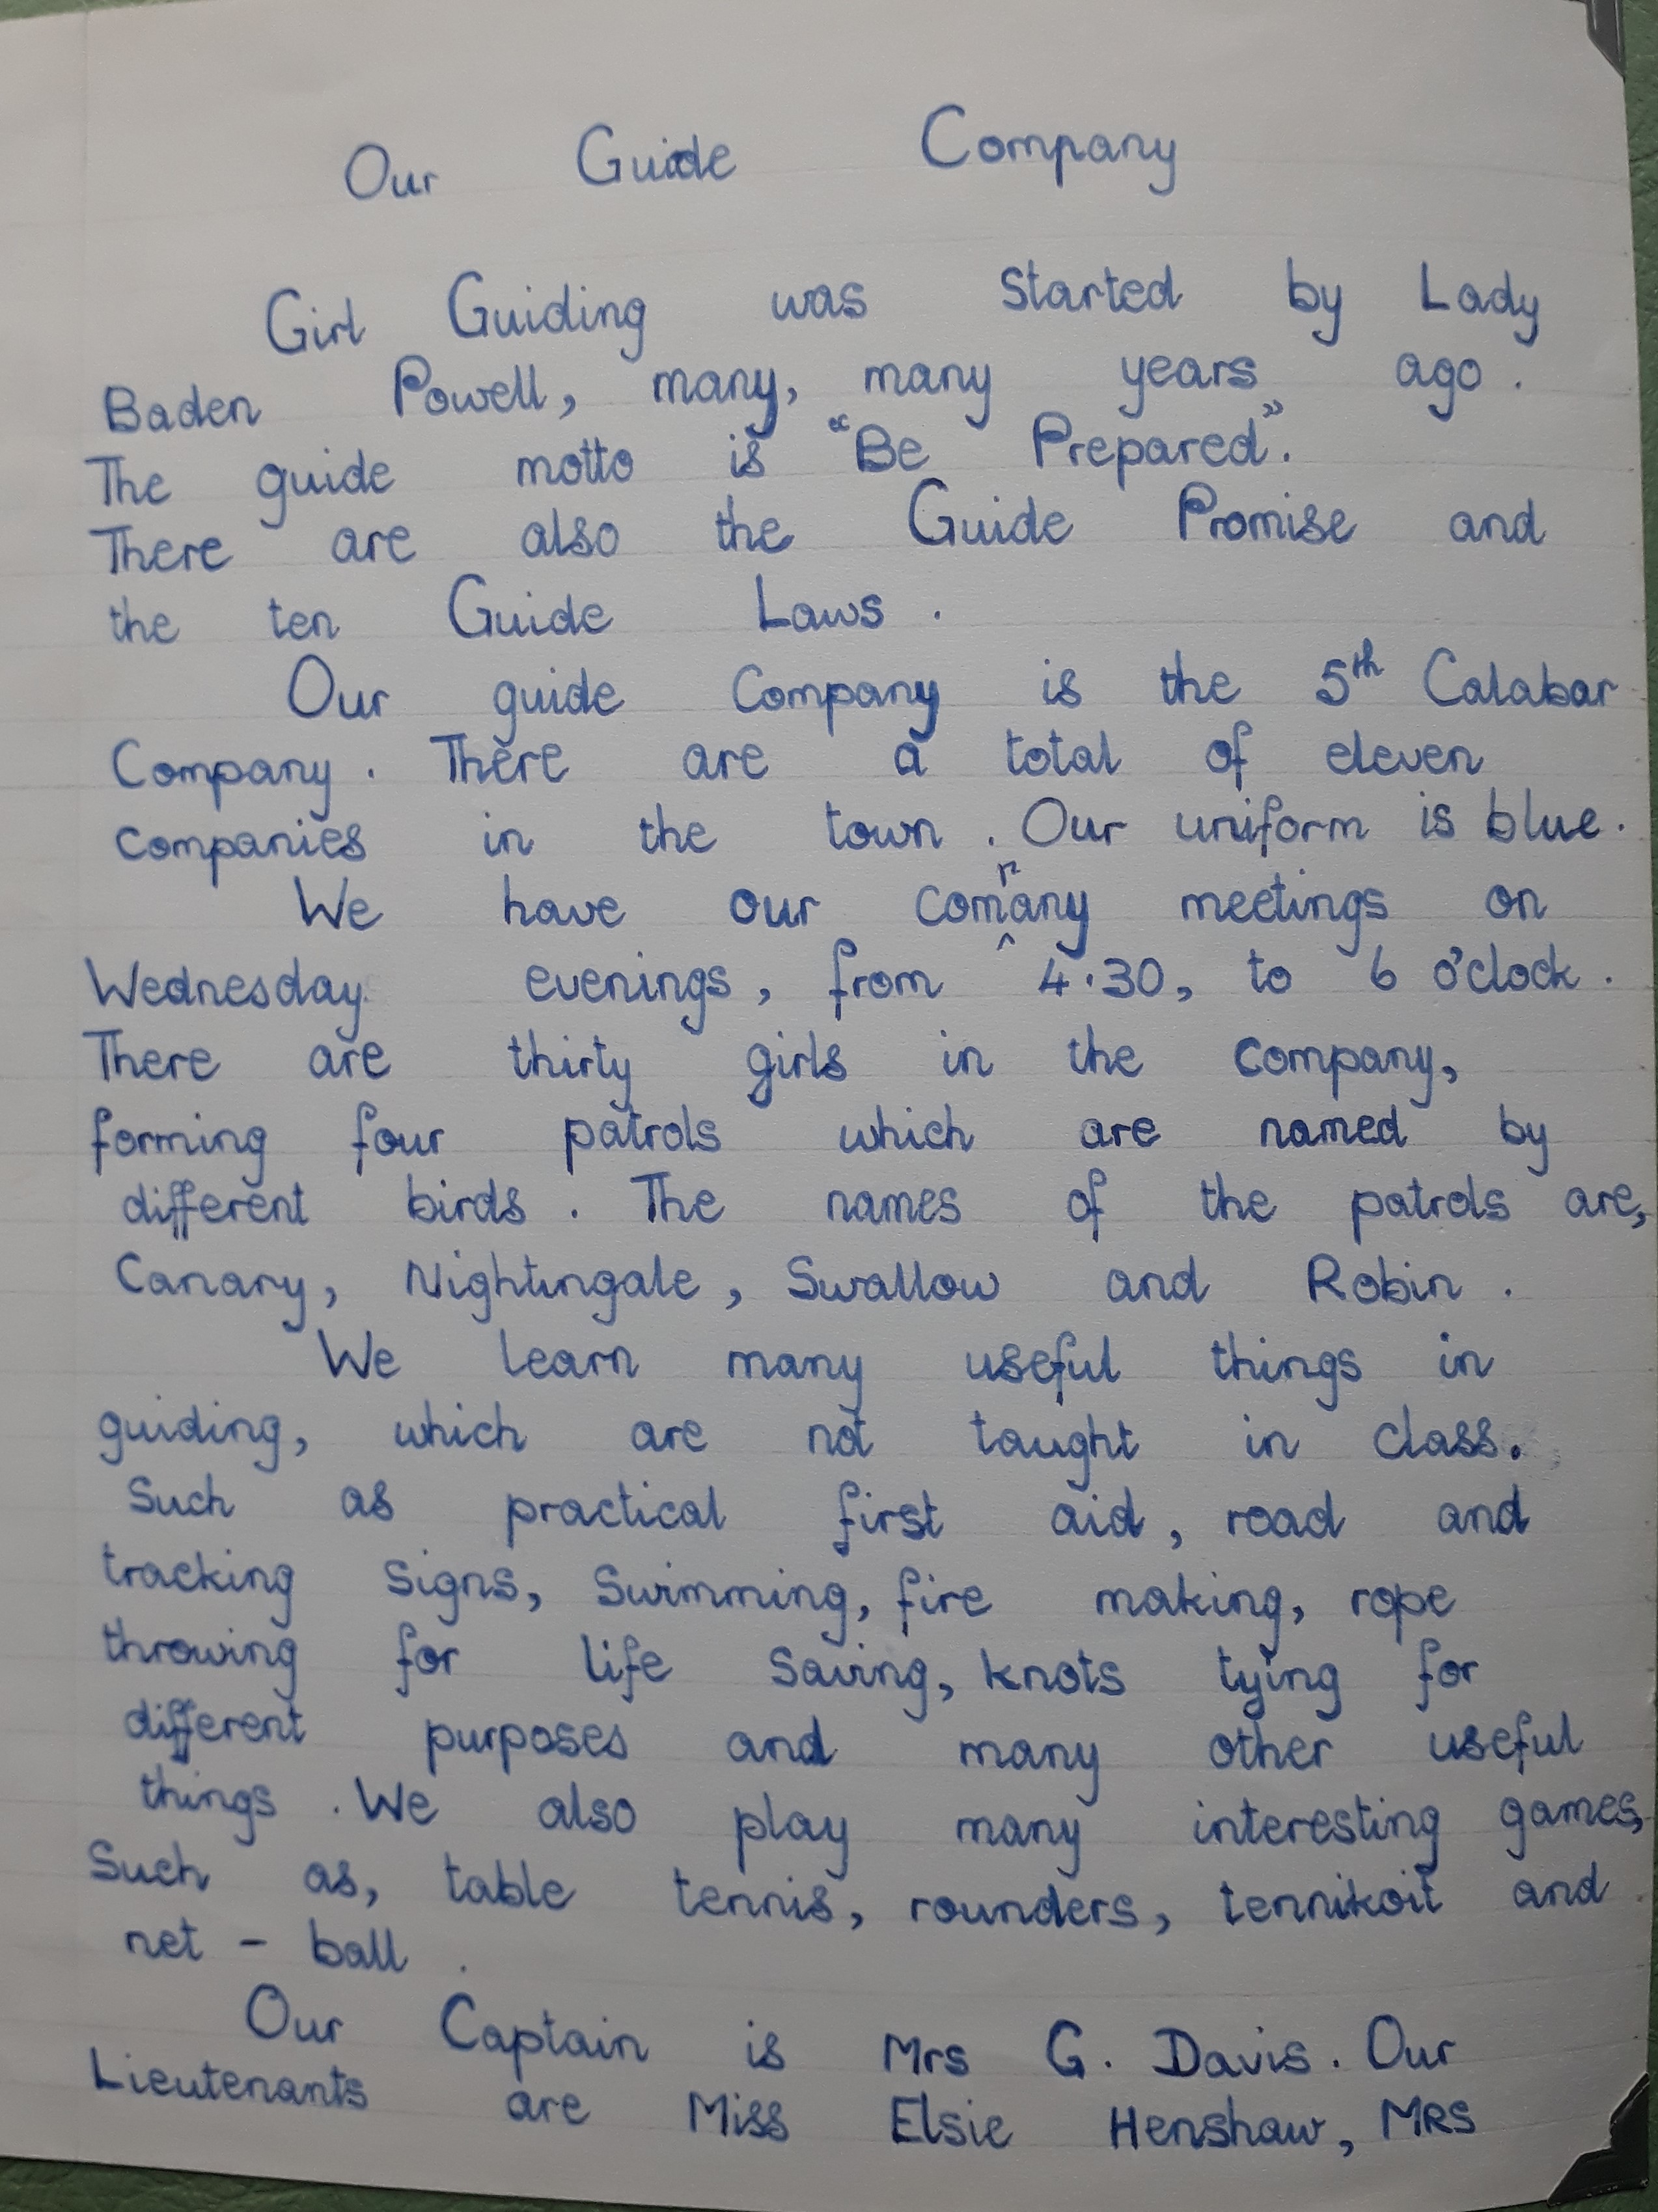 Our Guide Company
Girl Guiding was started by Lady
Baden Powell, many, many years ago.
The guide motto is "Be Prepared".
There are also the Guide Promise and
the ten Guide Laws.
Our guide Company is the 5th Calabar
Company. There are a total of eleven
companies in the town. Our uniform is blue.
We have our company meetings on
Wednesday evenings, from 4.30, to 6 o'clock.
There are thirty girls in the company,
forming four patrols which are named by
different birds. The names of the patrols are,
Canary, Nightingale, Swallow and Robin.
We learn many useful things in
guiding, which are not taught in class.
Such as practical first aid, road and
tracking signs, Swimming, fire making, rope
throwing for life saving, knots tying for
different purposes and many other useful
things. We also play many interesting games,
Such as, table tennis, rounders, tennikoit and
net-ball.
Our Captain is Mrs G. Davis. Our
Lieutenants are Miss Elsie Henshaw, MRS